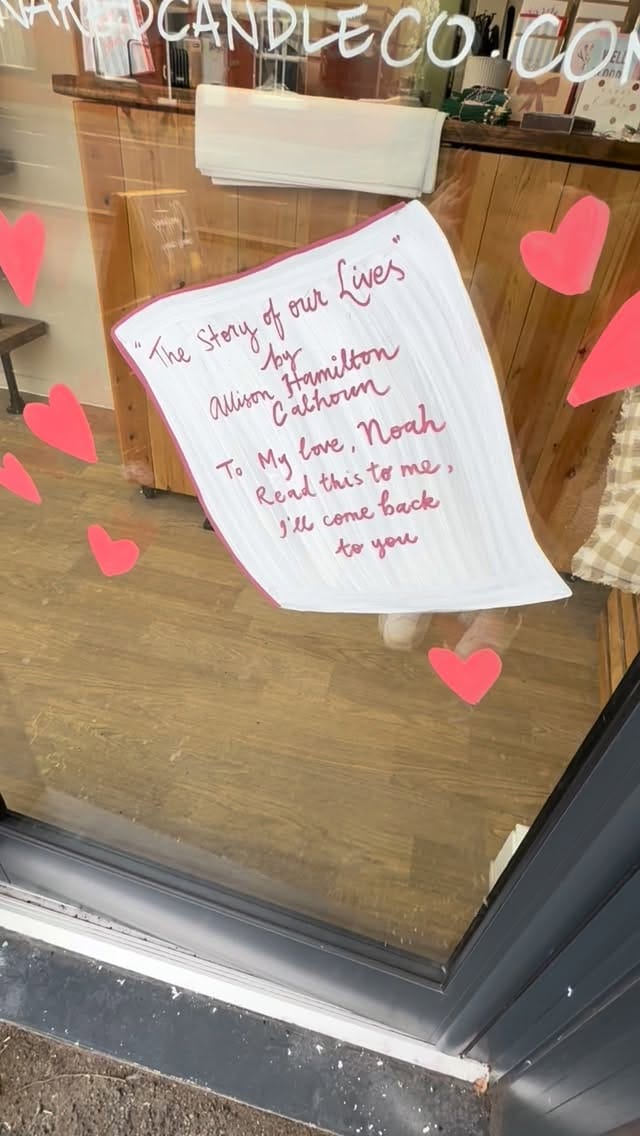 NAKEDCANDLECO.COM
"The Story of our Lives"
by
Allison Hamilton
Calhoun
To My love, Noah
Read this to me,
I'll come back
to you